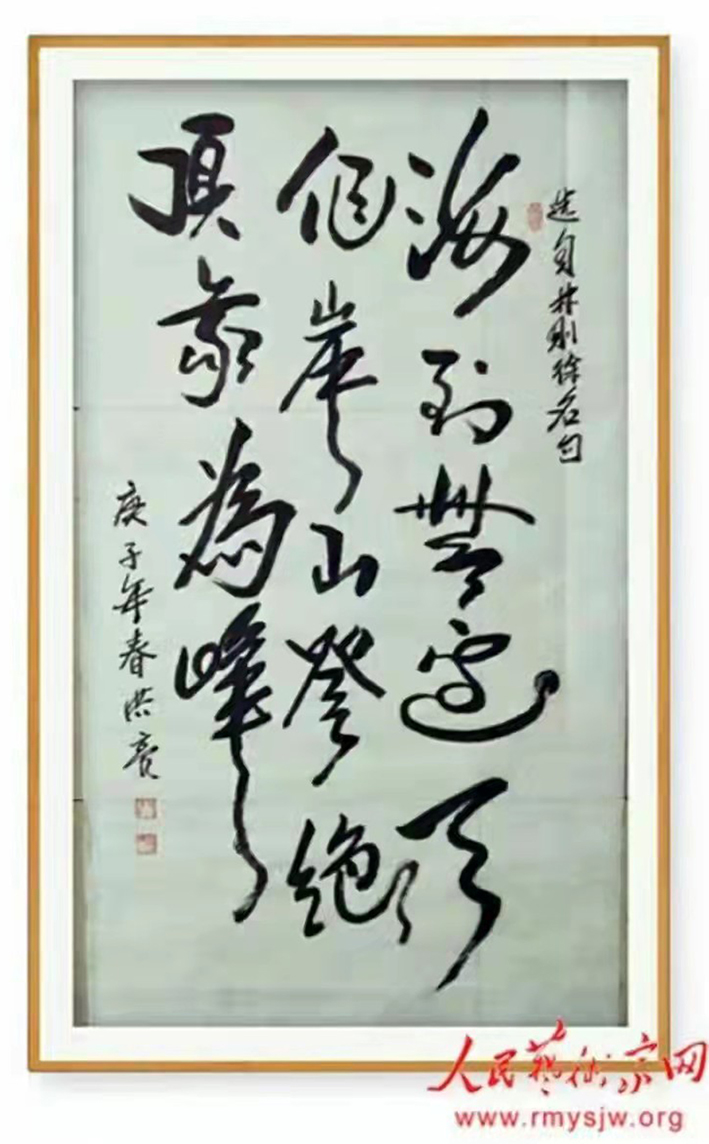 选自林则徐名句
海到無边天
作岸山登绝
頂我為峰
庚子年春洪亮
人民艺术家网
www.rmysjw.org